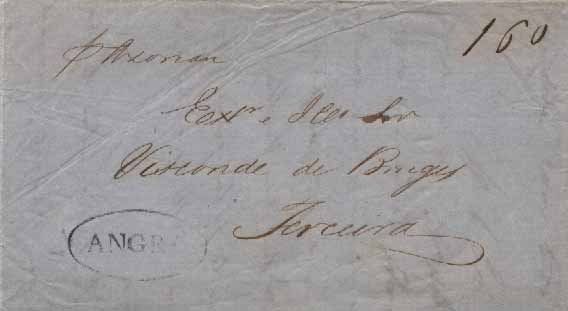 160
p Azorian
Exmo e Illmo Snr
Visconde de Bruges
Terceira
ANGR